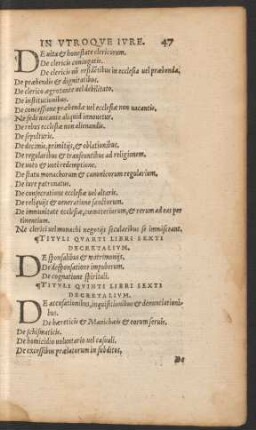 IN VTROQVE IVRE. 47
DE uita & honestate clericorum.
De clericis coniugatis.
De clericis nō residētibus in ecclesia uel præbenda,
De præbendis & dignitatibus.
De clerico ægrotante uel debilitato.
De institutionibus.
De concessione præbendæ uel ecclesiæ non uacantis.
Ne sede uacante aliquid innouetur.
De rebus ecclesiæ non alienandis.
De sepulturis.
De decimis, primitijs, & oblationibus.
De regularibus & transeuntibus ad religionem.
De uoto & uoti redemptione.
De statu monachorum & canonicorum regularium,
De iure patronatus.
De consecratione ecclesiæ uel altaris.
De reliquijs & ueneratione sanctorum.
De immunitate ecclesiæ, cœmiteriorum, & rerum ad eas per
tinentium.
Ne clerici uel monachi negocijs secularibus se immisceant.
¶TITVLI QVARTI LIBRI SEXTI
DECRETALIVM.
DE sponsalibus & matrimonijs.
De desponsatione impuberum.
De cognatione spirituali.
¶TITVLI QVINTI LIBRI SEXTI
DECRETALIVM.
DE accusationibus, inquisitionibus & denunciationi-
bus.
De hæreticis & Manichæis & eorum sectis.
De schismaticis.
De homicidio uoluntario uel casuali.
De excessibus prælatorum in subditos,
De